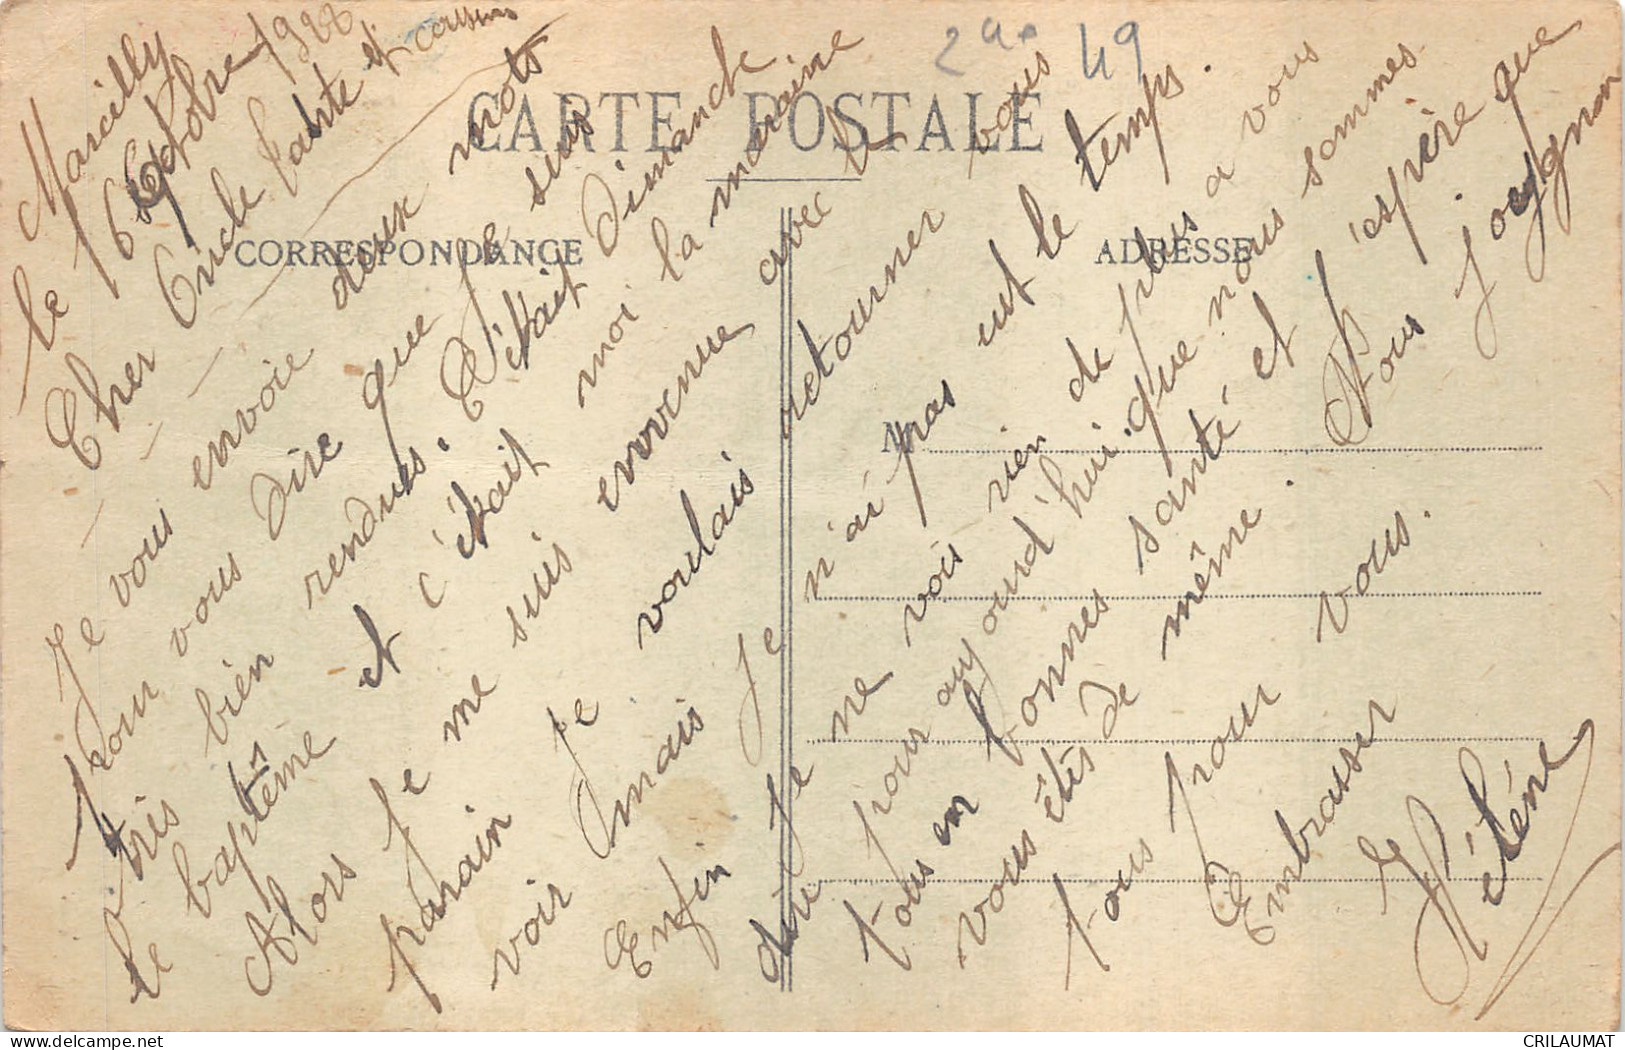 29 49
CARTE POSTALE
CORRESPONDANCE
ADRESSE
M
Marcilly
le 6 Octobre 1922
Cher Oncle tante et cousins
Je vous envoie deux mots
pour vous dire que je suis
très bien rendus. C'était Dimanche
le baptême et c'était moi la maraine
Alors je me suis envenue avec le
parain je voulais retourner vous
voir mais je n'ai pas eut le temps.
Enfin je ne vois rien de plus a vous
dire pour aujourd'hui que nous sommes
tous en bonnes santé et j'espère que
vous êtes de même. Nous
tous pour vous.
Embrasser
Héléne
CRILAUMAT